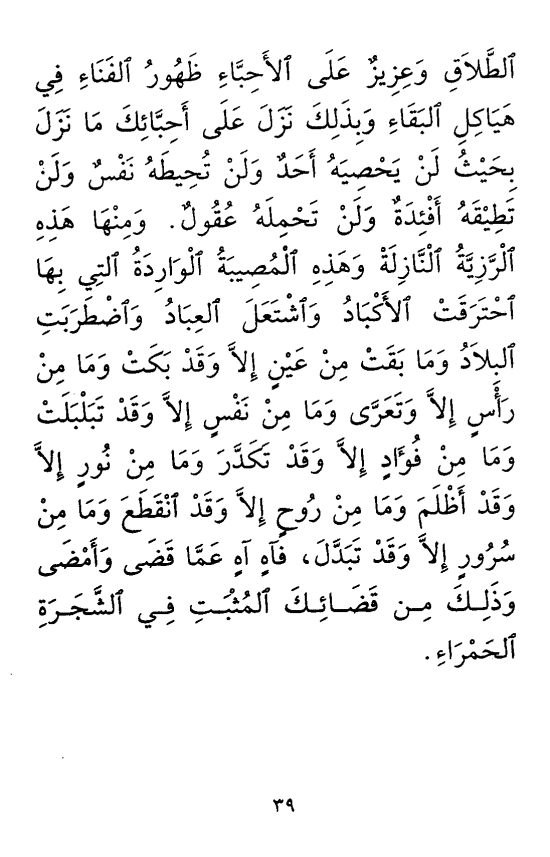 ٱلطَّلَاقِ وَعِزِيزٌ عَلَى ٱلأَحِبَّاءِ ظَهُورُ ٱلفَنَاءِ فِي
هَيَاكِلِ ٱلبَقَاءِ وَبِذَلِكَ نَزَلَ عَلَى أَحِبَّائِكَ مَا نَزَلَ
بِحَيْثُ لَنْ يَحْصِيَهُ أَحَدٌ وَلَنْ تُحِيطَهُ نَفْسٌ وَلَنْ
تَطِيْقَهُ أَفْئِدَةٌ وَلَنْ تَحْمِلَهُ عُقُولٌ. وَمِنْهَا هَذِهِ
ٱلْرَّزِيَّةُ ٱلْنَّازِلَةْ وَهَذِهِ ٱلْمُصِيبَةُ ٱلْوَارِدَةُ ٱلتِي بِهَا
ٱحْتَرَقَتْ ٱلأَكْبَادُ وَٱشْتَعَلَ ٱلعِبَادُ وَٱضْطَرَبَتِ
ٱلبِلاَدُ وَمَا بَقَتْ مِنْ عَيْنٍ إِلاَّ وَقَدْ بَكَتْ وَمَا مِنْ
رَأْسٍ إِلاَّ وَتَعَرَّى وَمَا مِنْ نَفْسٍ إِلاَّ وَقَدْ تَبَلْبَلَتْ
وَمَا مِنْ فُوَٴادٍ إِلاَّ وَقَدْ تَكَدَّرَ وَمَا مِنْ نُورٍ إِلاَّ
وَقَدْ أَظْلَمَ وَمَا مِنْ رُوحٍ إِلاَّ وَقَدْ ٱنْقَطَعَ وَمَا مِنْ
سُرُورٍ إِلاَّ وَقَدْ تَبَدَّلَ، فَآهٍ آهٍ عَمَّا قَضَى وَأَمْضَى
وَذَلِكَ مِن قَضَائِكَ ٱلمُثْبُتِ فِي ٱلشَّجَرَةِ
ٱلحَمْرَاءِ.
٣٩